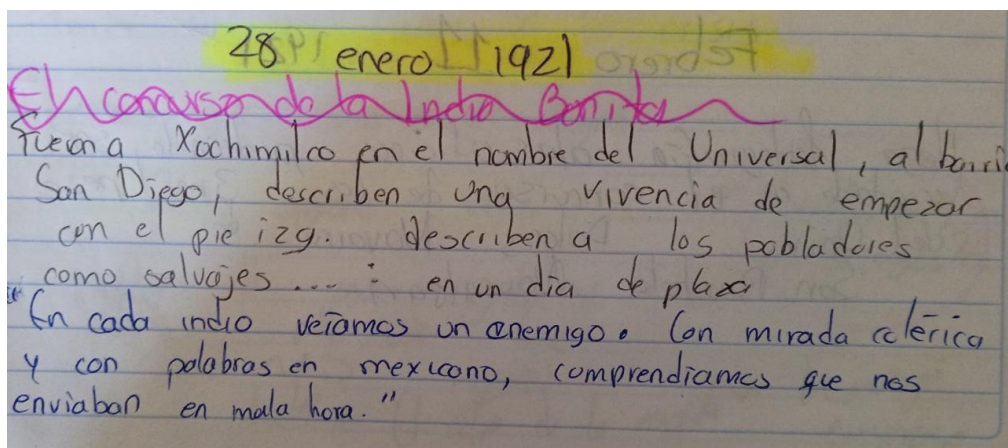 28 enero 1921
El concurso de la India Bonita
Fueron a Xochimilco en el nombre del Universal, al barri
San Diego, describen una vivencia de empezar
con el pie izq. describen a los pobladores
como salvajes... : en un día de plaza
"En cada indio veíamos un enemigo. Con mirada colérica
y con palabras en mexicano, comprendíamos que nos
enviaban en mala hora."